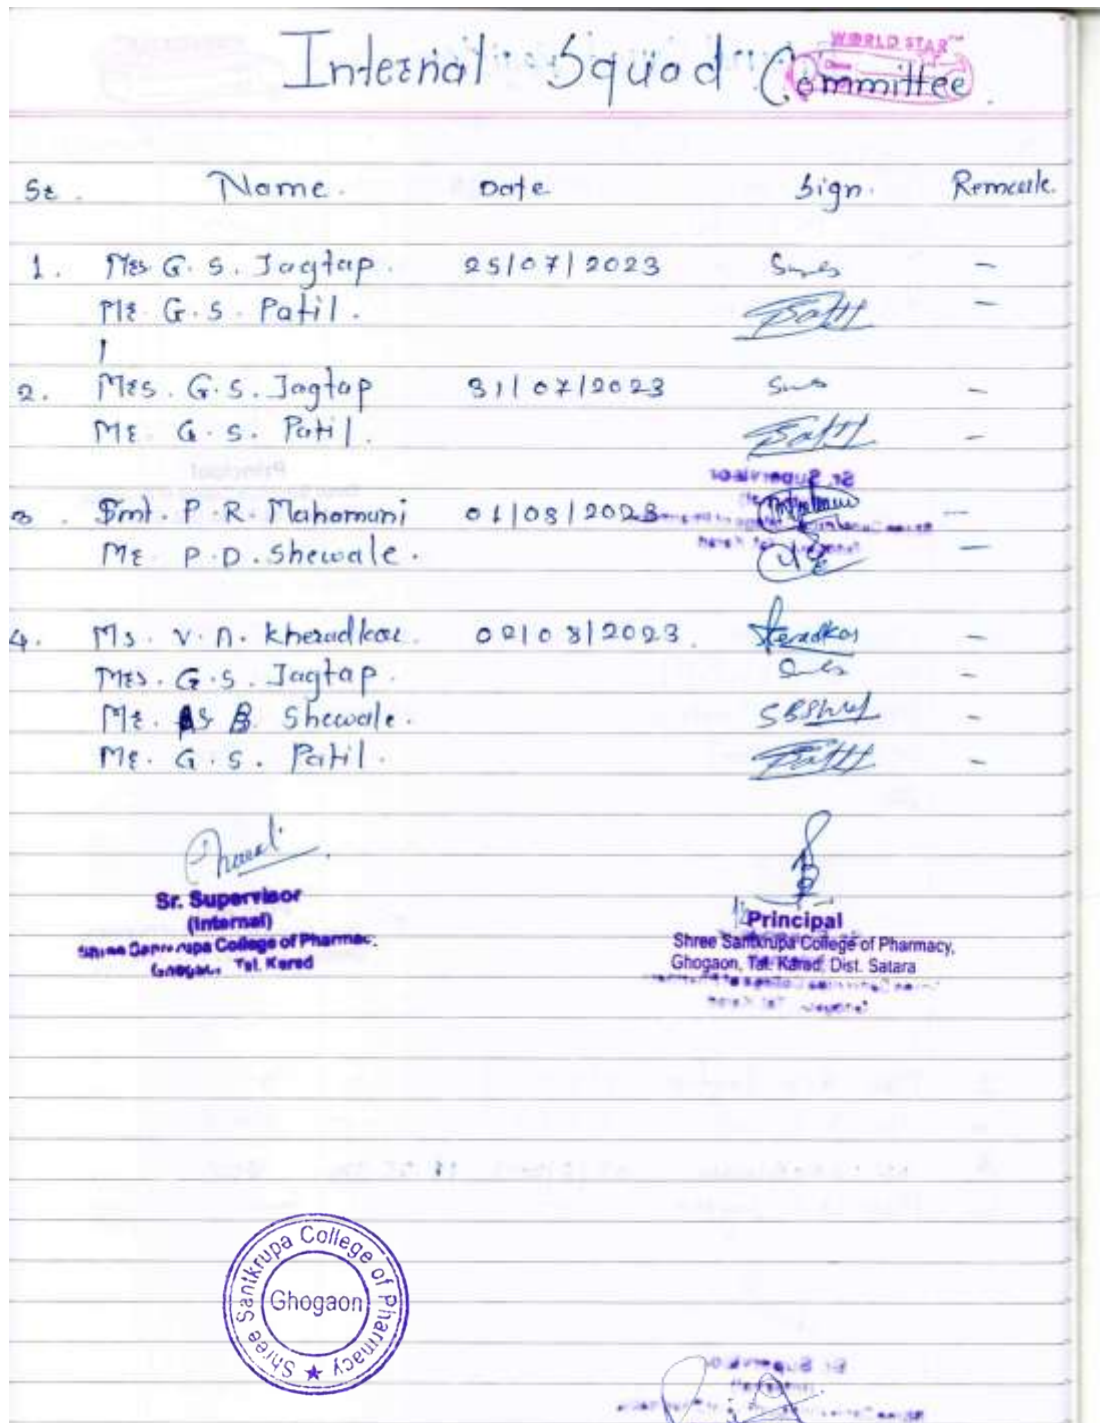 WORLD STAR™
Internal Squad Committee
Sr. Name. Date Sign. Remark.
1. Mrs G. S. Jagtap. 25/07/2023 –
Mr. G. S. Patil. –
2. Mrs. G. S. Jagtap 31/07/2023 –
Mr. G. S. Patil. –
3. Smt. P. R. Mahamuni 01/08/2023 –
Mr. P. D. Shewale. –
4. Ms. V. N. Kheradkar. 02/08/2023. Keradkar –
Mrs. G. S. Jagtap. –
Mr. S B. Shewale. –
Mr. G. S. Patil. –
Sr. Supervisor
(Internal)
Shree Santkrupa College of Pharmacy
Ghogaon, Tal. Karad
Principal
Shree Santkrupa College of Pharmacy,
Ghogaon, Tal. Karad, Dist. Satara
Shree Santkrupa College of Pharmacy ★
Ghogaon